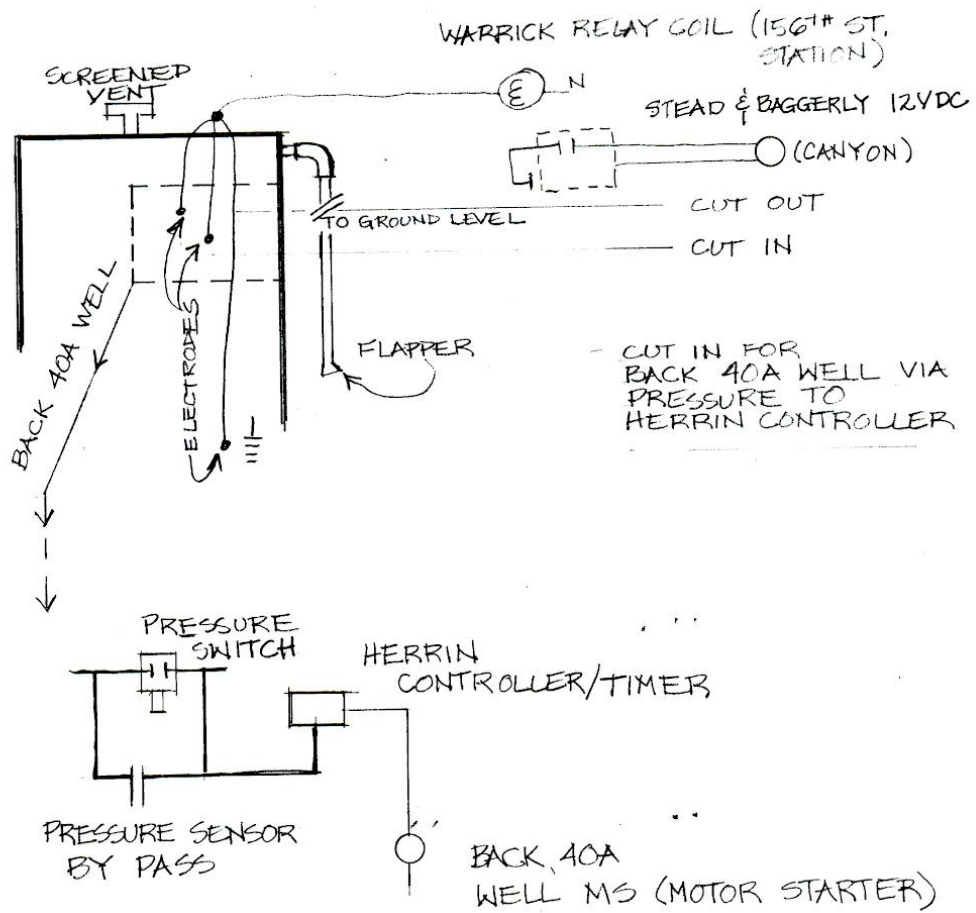 WARRICK RELAY COIL (156TH ST.
STATION)
SCREENED
VENT
E
N
STEAD & BAGGERLY 12VDC
(CANYON)
CUT OUT
TO GROUND LEVEL
CUT IN
BACK 40A WELL
ELECTRODES
FLAPPER
- CUT IN FOR
BACK 40A WELL VIA
PRESSURE TO
HERRIN CONTROLLER
PRESSURE
SWITCH
HERRIN
CONTROLLER/TIMER
PRESSURE SENSOR
BY PASS
BACK 40A
WELL MS (MOTOR STARTER)